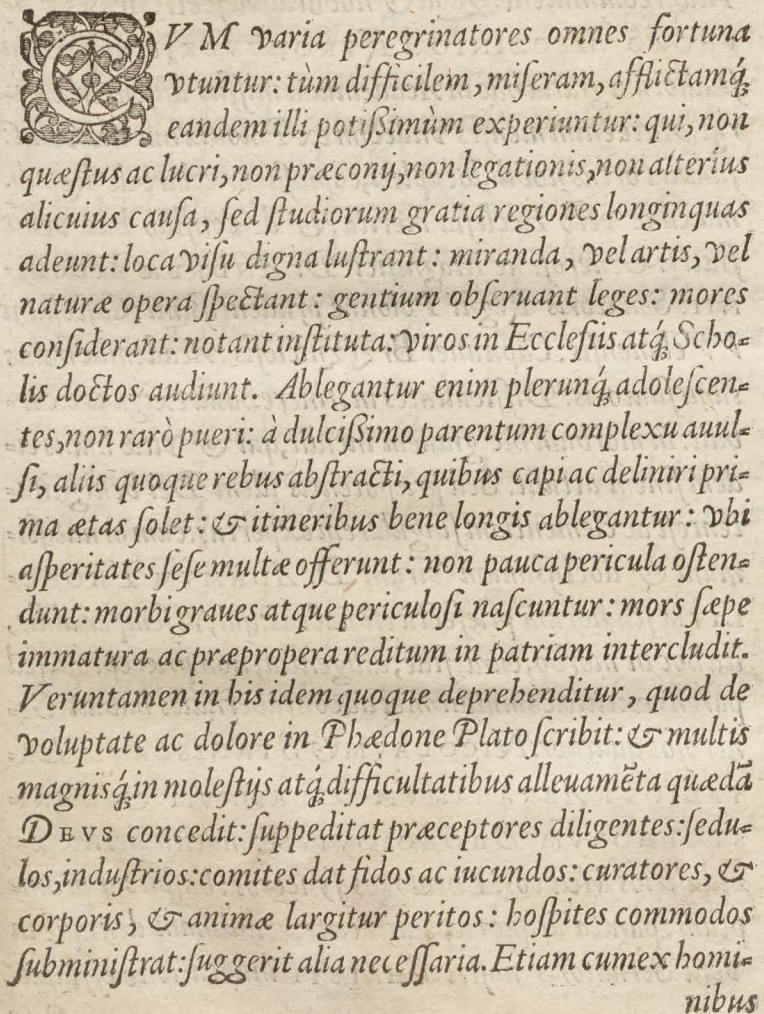 CVM varia peregrinatores omnes fortuna
vtuntur: tùm difficilem, miſeram, afflictamq́;
eandem illi potißimùm experiuntur: qui, non
quæſtus ac lucri, non præconij, non legationis, non alterius
alicuius cauſa, ſed ſtudiorum gratia regiones longinquas
adeunt: loca viſu digna luſtrant: miranda, vel artis, vel
naturæ opera ſpectant: gentium obſeruant leges: mores
conſiderant: notant inſtituta: viros in Eccleſiis atq́; Scho-
lis doctos audiunt. Ablegantur enim plerunq́; adoleſcen-
tes, non rarò pueri: à dulcißimo parentum complexu auul-
ſi, aliis quoque rebus abſtracti, quibus capi ac deliniri pri-
ma ætas ſolet: & itineribus bene longis ablegantur: vbi
aſperitates ſeſe multæ offerunt: non pauca pericula oſten-
dunt: morbi graues atque periculoſi naſcuntur: mors ſæpe
immatura ac præpropera reditum in patriam intercludit.
Veruntamen in his idem quoque deprehenditur, quod de
voluptate ac dolore in Phædone Plato ſcribit: & multis
magnisq́; in moleſtijs atq́; difficultatibus alleuamẽta quædã
DEVS concedit: ſuppeditat præceptores diligentes: ſedu-
los, induſtrios: comites dat fidos ac iucundos: curatores, &
corporis, & animæ largitur peritos: hoſpites commodos
ſubminiſtrat: ſuggerit alia neceſſaria. Etiam cum ex homi-
nibus